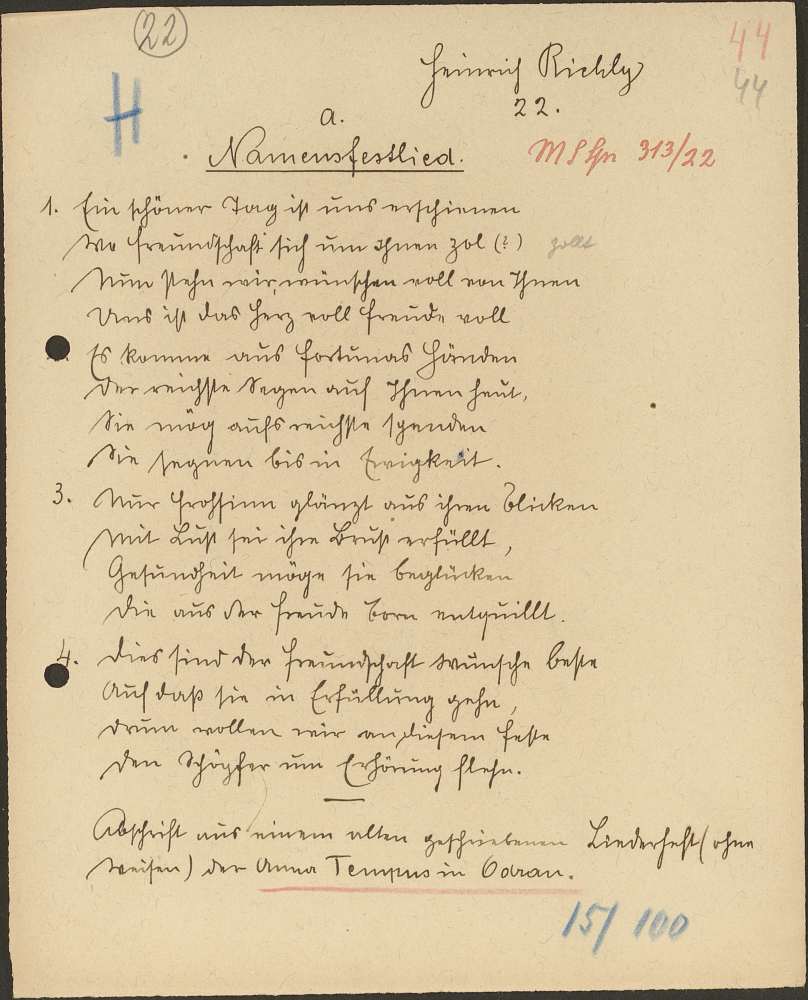 22
44
44
H
Heinrich Richly
22.
a.
Namensfestlied.
313/22
1. Ein schöner Tag ist uns erschienen
Wo Freundschaft sich um Ihnen zol (?) zollt
Nun stehn wir, wünschen voll von Ihnen
Uns ist das Herz voll Freude voll
Es komme aus Fortunas Händen
Der reichste Segen auf Ihnen heut,
Sie mög aufs reichste spenden
Sie segnen bis in Ewigkeit.
3. Nur Frohsinn glänzt aus ihren Blicken
Mit Lust sei ihre Brust erfüllt,
Gesundheit möge sie beglücken
Die aus der Freude Born entquillt.
4. Dies sind der Freundschaft Wünsche beste
Auf daß sie in Erfüllung gehn,
Drum wollen wir an diesem Feste
Den Schöpfer um Erhörung flehn.
Abschrift aus einem alten geschriebenen Liederheft (ohne
Weisen) der Anna Tempus in
15/100